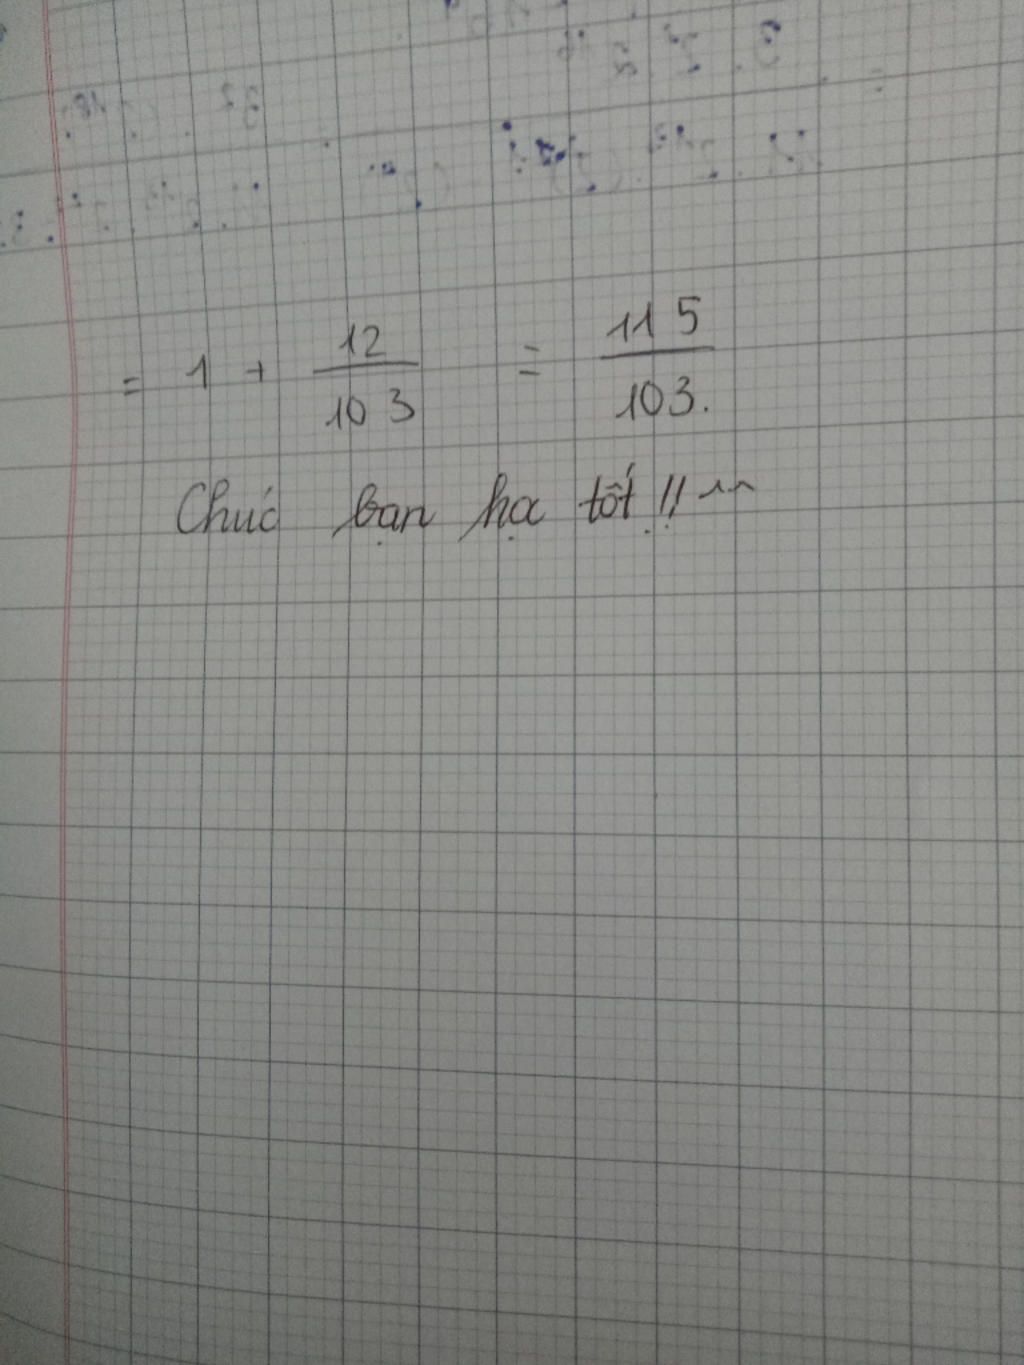 = 1 + 12/103 = 115/103.
Chúc bạn họ tốt!! ^^